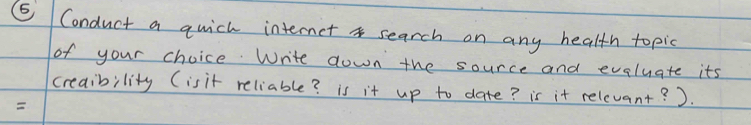 ⑤ Conduct a quich internet search on any health topic
of your choice. Write down the source and evaluate its
credibility (is it reliable? is it up to date? is it relevant?).
=